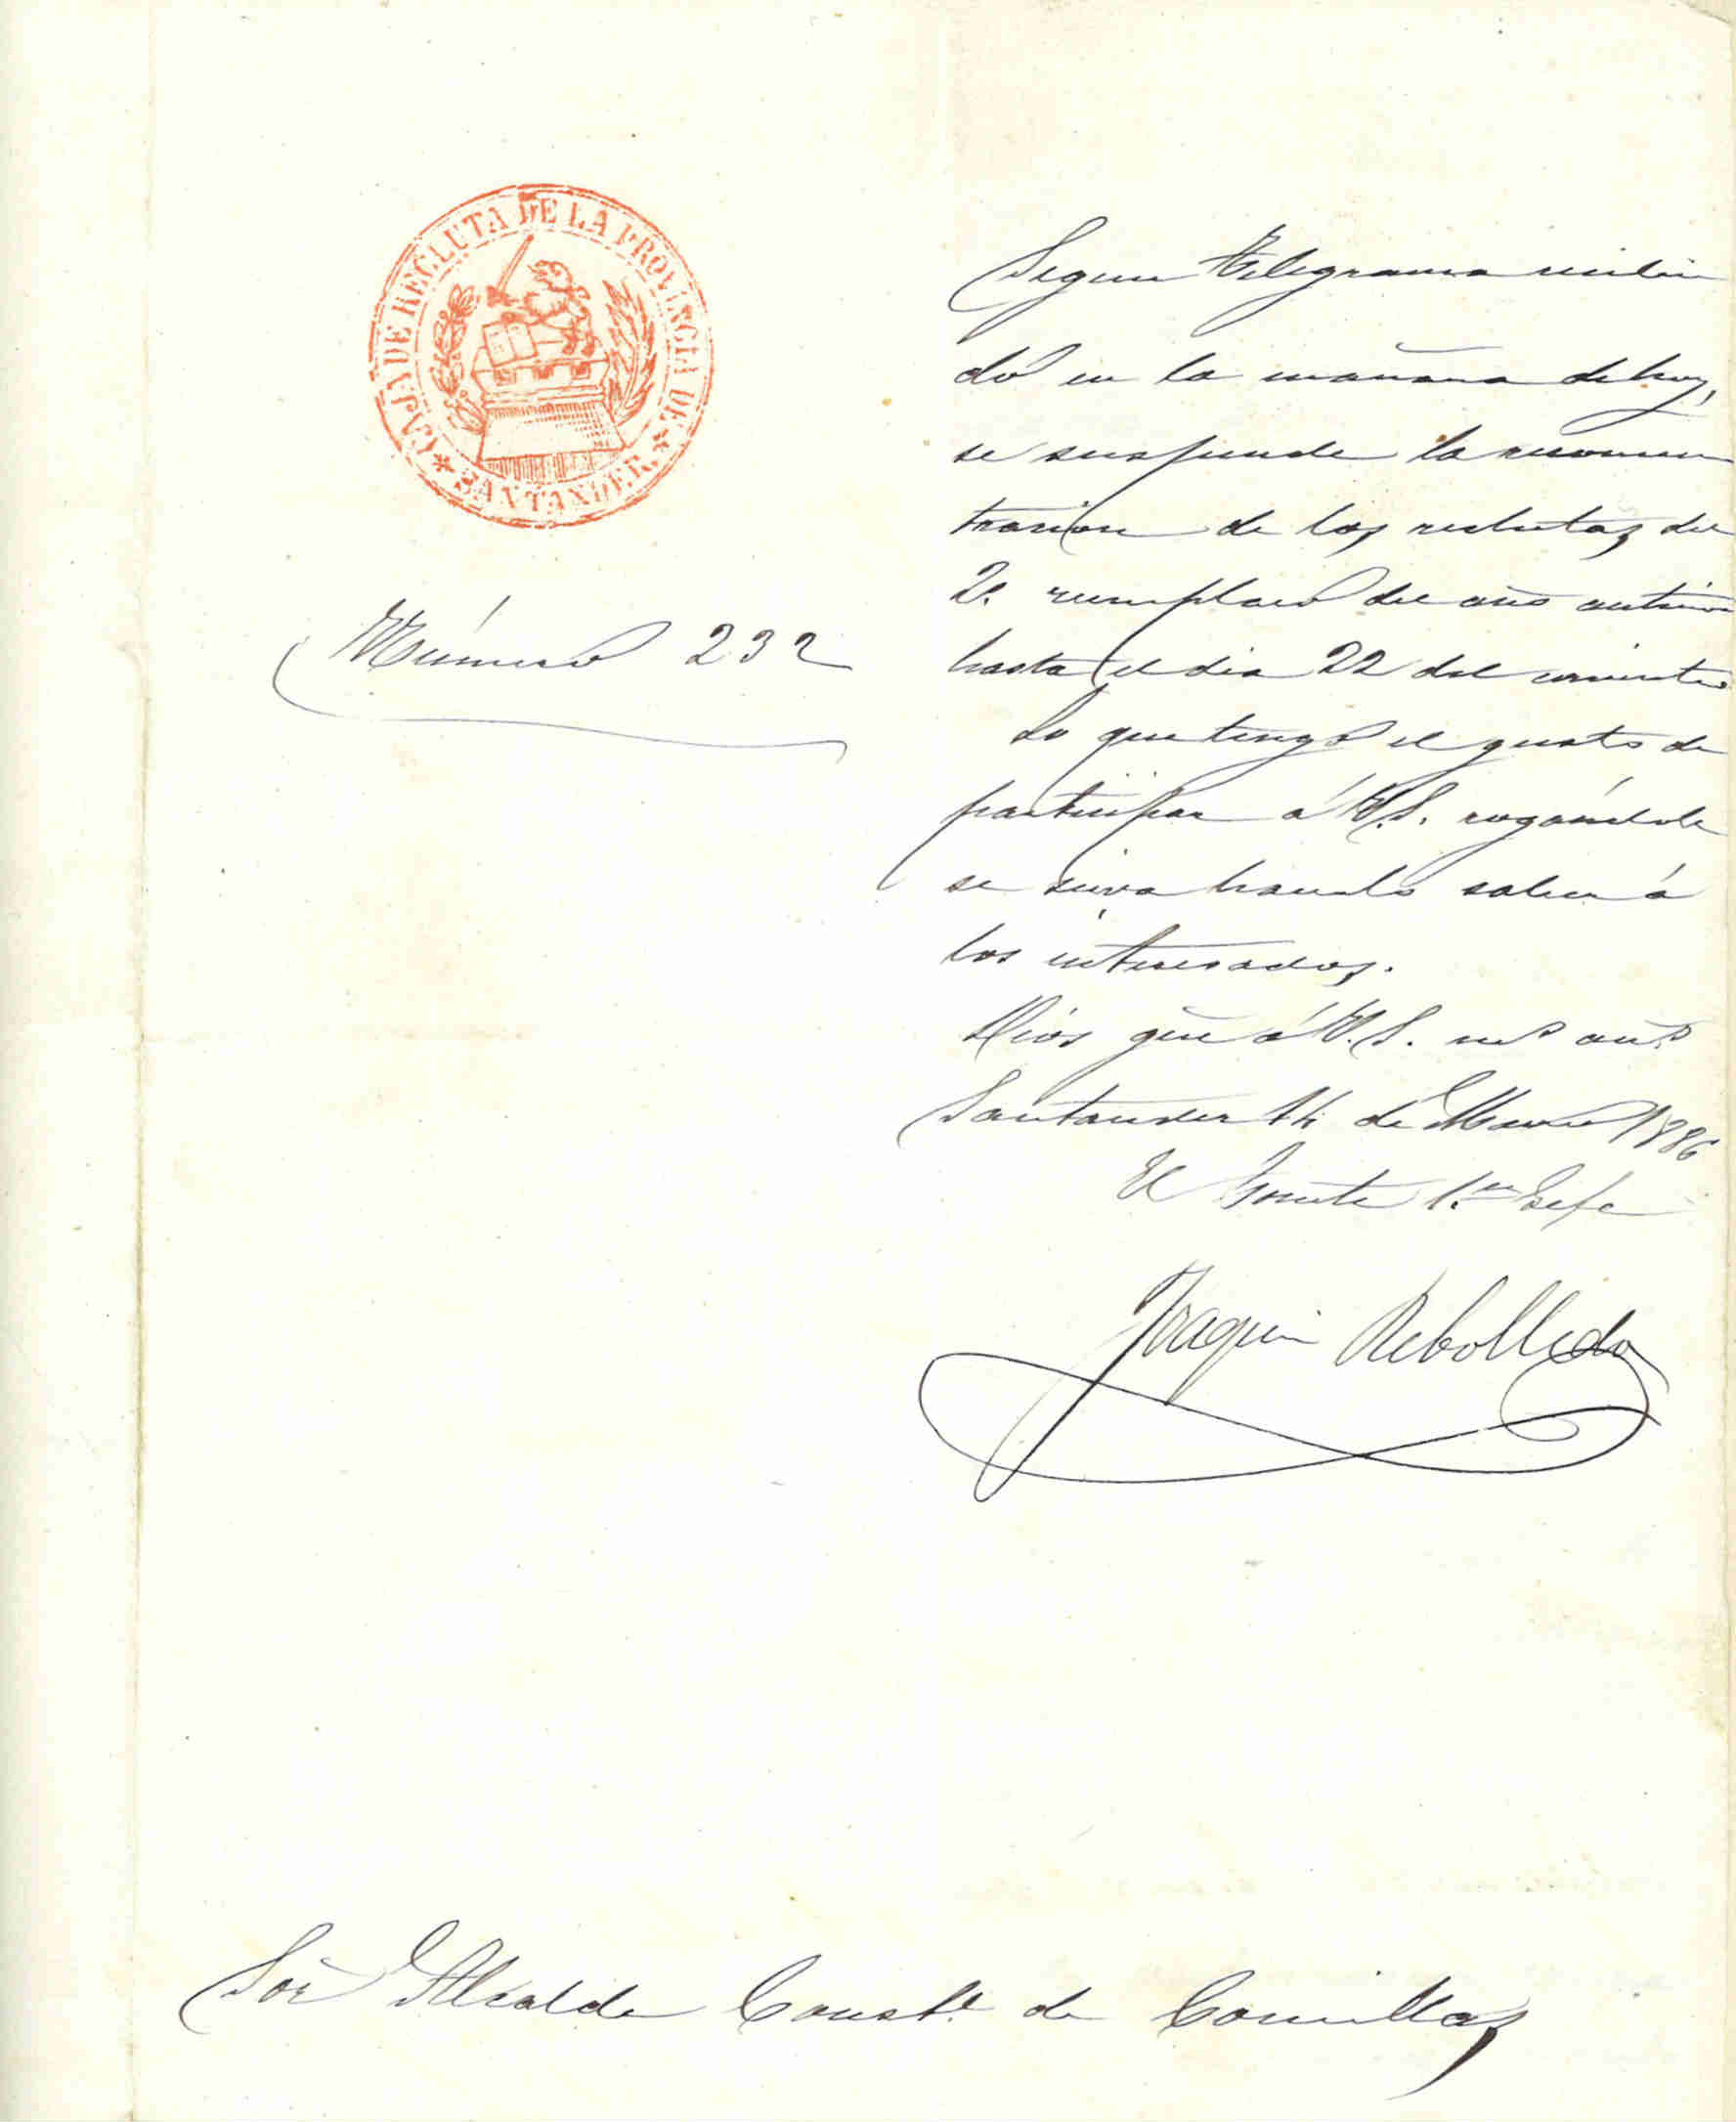 CAJA DE RECLUTA DE LA PROVINCIA DE
* SANTANDER *
Número 232
Segun telegrama recibi
do en la mañana de hoy,
se suspende la reconcen
tracion de los reclutas del
2º. reemplazo del año anterior
hasta el dia 22 del corriente.
Lo que tengo el gusto de
participar á V.S. rogándole
se sirva hacerlo saber á
los interesados.
Dios gue á V.S. ms. ans.
Santander 14 de 1886
El 1.er Gefe
Joaquin Rebolledo
Sor. Alcalde Constl. de Comillas